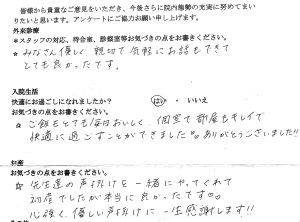 皆様から貴重なご意見をいただき、今後さらに院内態勢の充実に努めてまい
りたいと思います。アンケートにご協力お願い申し上げます。
外来診療
*スタッフの対応、待合室、診察室等お気づきの点をお書きください。
☆ みなさん優しく親切で気軽にお話もできて
とても良かったです。
入院生活
快適にお過ごしになれましたか? はい ・ いいえ
お気づきの点をお書きください。
☆ ご飯もとても毎日おいしく、個室で部屋もキレイで
快適に過ごすことができました。ありがとうございました!!
お産
お気づきの点をお書きください。
☆ 先生達の声掛けを一緒にやってくれて
初産でしたが本当に良かったです。
心強く、優しい声掛けに一生感謝します!!